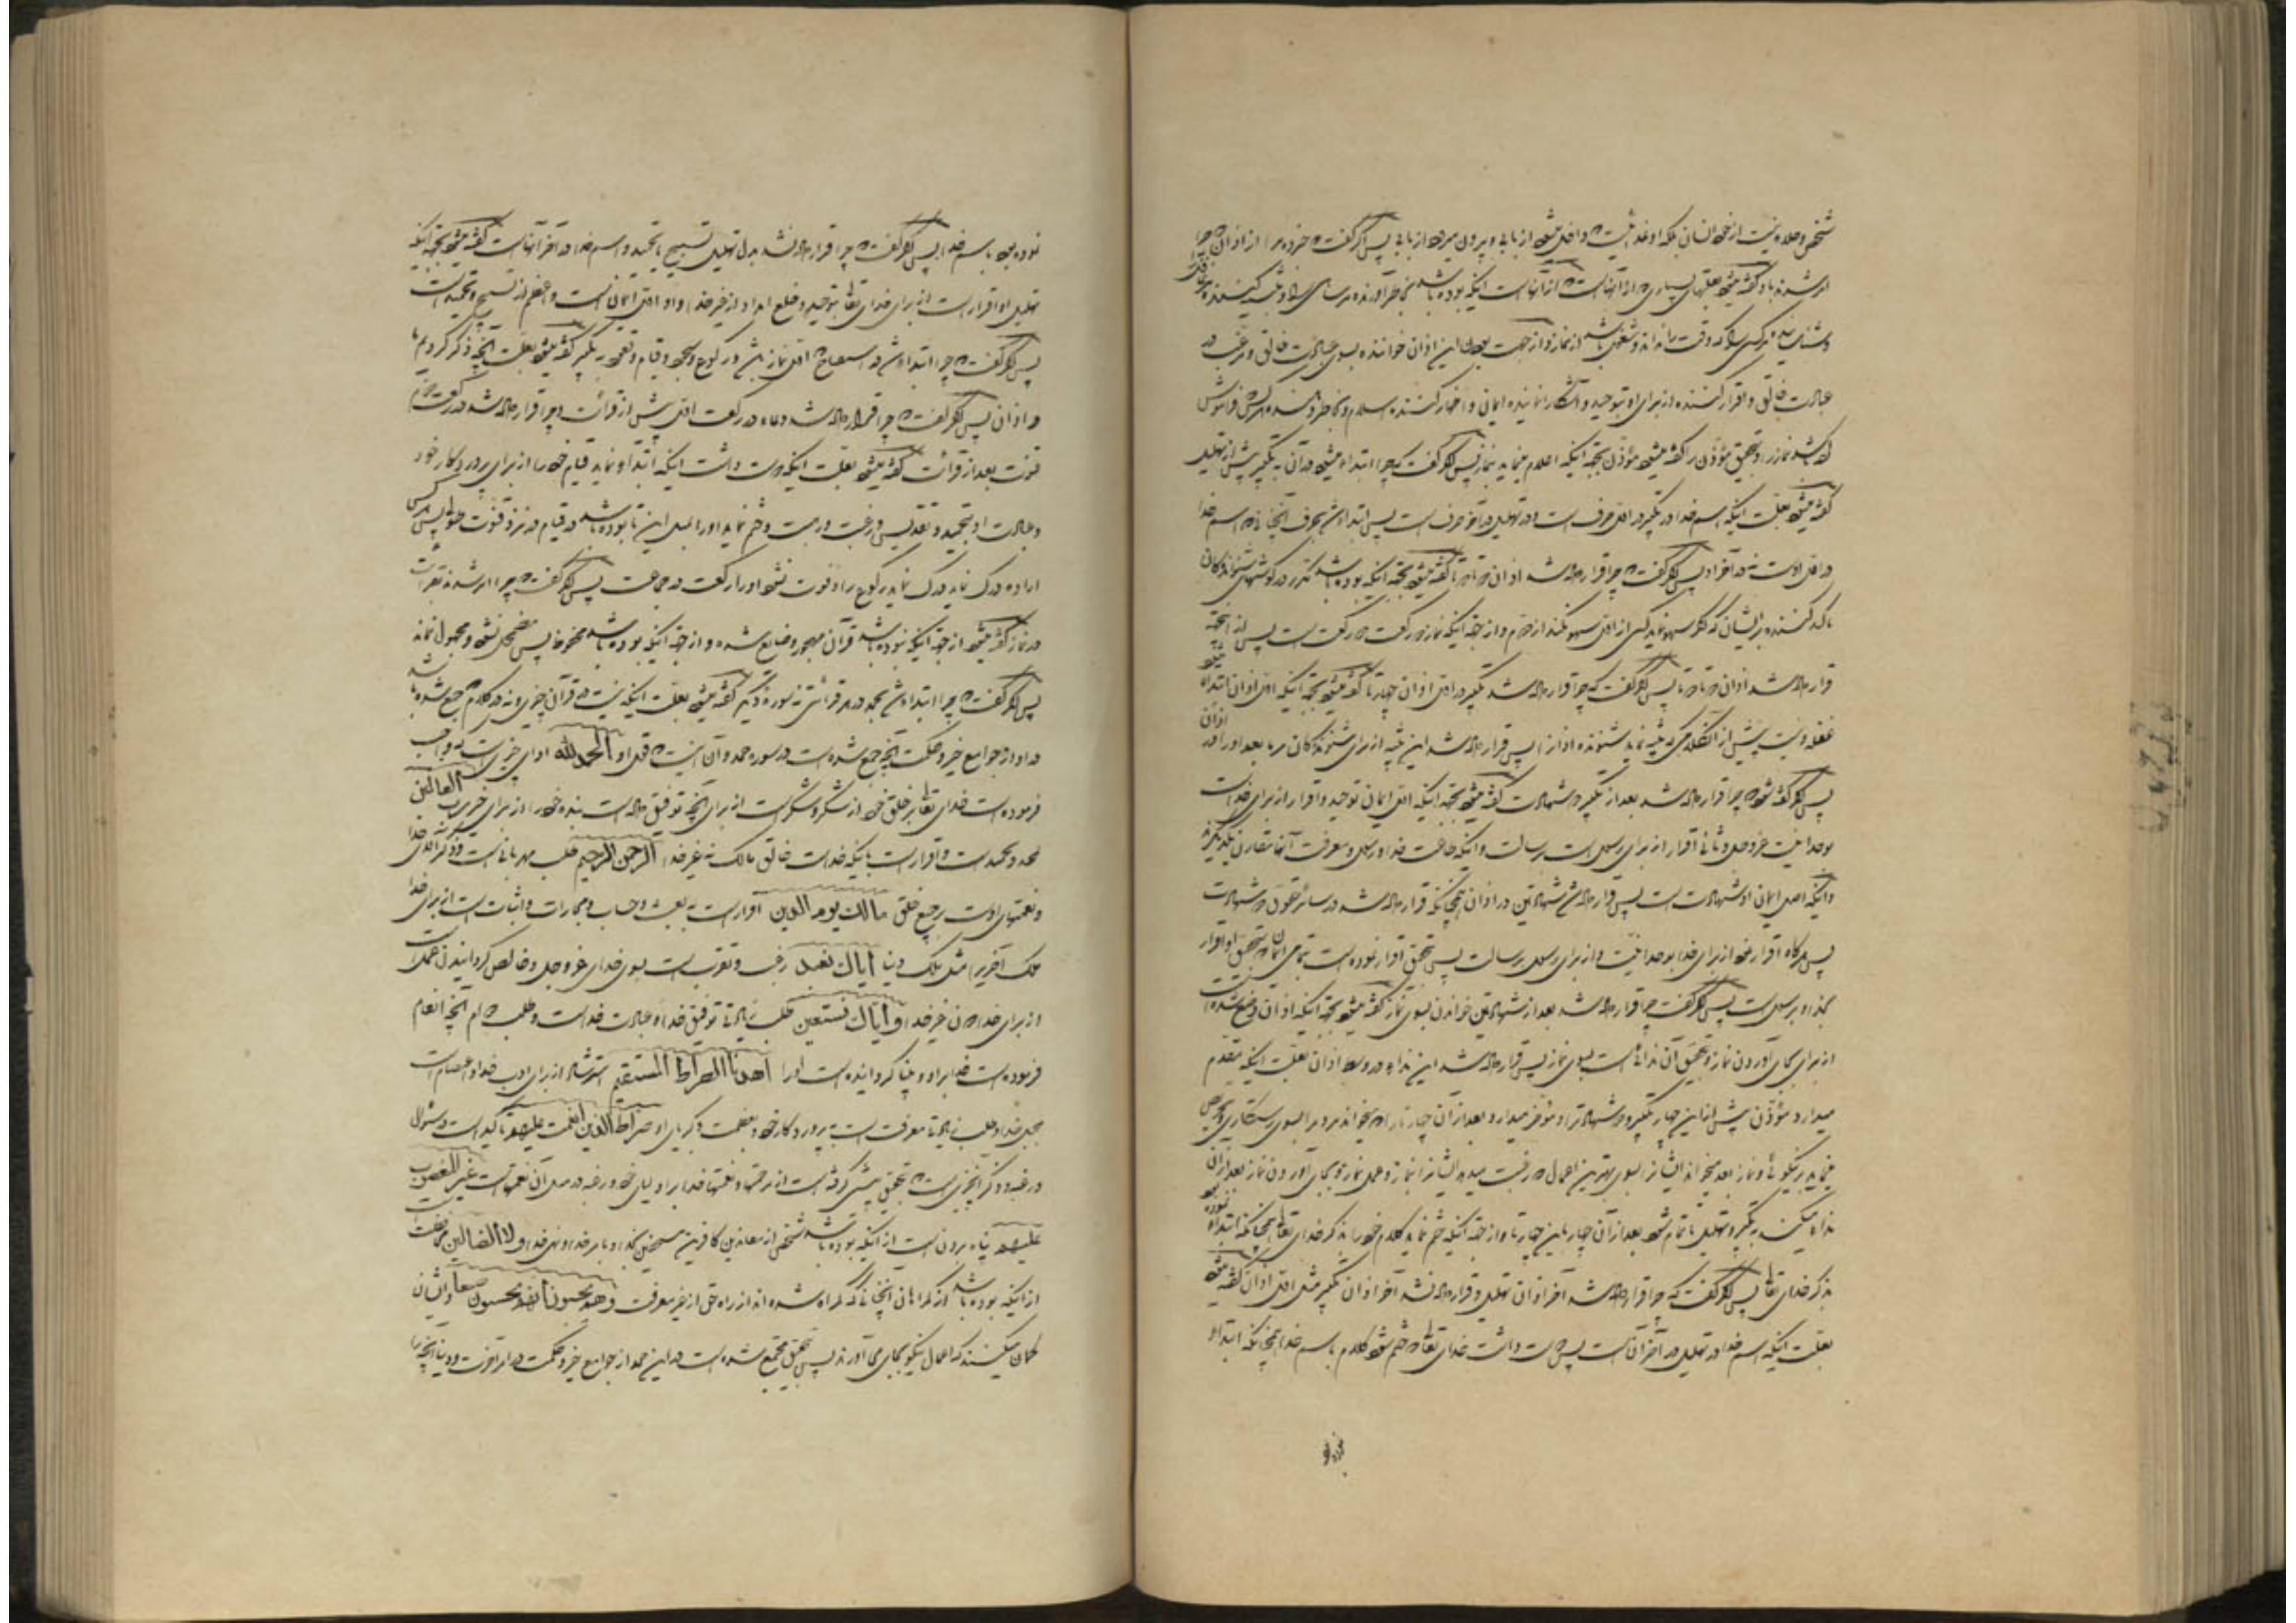 شخص و علاوه نیست از خود انسان بلکه او غذائیست که داخل میشود از بابی و بیرون میرود از بابی پس اگر گفت که خبر ده مرا از اذان که چرا
امر شدند باو گفته میشود بعلتهای بسیاری که از آنهاست که از آنهاست اینکه بوده باشد بخاطر آورنده مر ساهی را و تنبیه کننده مر غافل را
و شناساننده مر کسی را که وقت را نداند و مشغول باشد از نماز و از جهت بودن این اذان خواننده بسوی عبادت خالق و مرغب در
عبادت خالق و اقرار کننده از برای او بتوحید و آشکار نماینده ایمان و اخبار کننده اسلام و بخاطر دهنده مر کسی را که فراموش
کرده باشد نماز را و بتحقیق مؤذن را گفته میشود مؤذن بجهة اینکه اعلام مینماید بنماز پس اگر گفت که چرا ابتدا میشود در آن به تکبیر پیش از تهلیل
گفته میشود بعلت اینکه اسم خدا در تکبیر در اول حرف است و در تهلیل در آخر حرف است پس ابتدا شد بحرف آنچنانی که اسم خدا
در اول اوست نه در آخر او پس اگر گفت که چرا قرار داده شد اذان دو تا دو تا گفته میشود بجهة اینکه بوده باشد مکرر در گوشهای شنوندگان
تاکید کننده بر ایشان که اگر سهو نماید کسی از اول سهو نکند از دوم و از جهة اینکه نماز دو رکعت دو رکعت است پس از اینجهة
قرار داده شد اذان دو تا دو تا پس اگر گفت که چرا قرار داده شد تکبیر در اول اذان چهار تا گفته میشود بجهة اینکه اول اذان ابتداء میشود
غفلة و نیست پیش از آن کلامی که تنبیه نماید شنونده او را پس قرار داده شد این تنبیه از برای شنوندگان مر ما بعد او را در اذان
پس اگر گفته شود که چرا قرار داده شد بعد از تکبیر دو شهادت گفته میشود بجهة اینکه اول ایمان توحید و اقرار از برای خداست
بوحدانیت عز و جل و ثانی اقرار از برای رسول است برسالت و اینکه طاعت خدا و رسول و معرفت آنها مقارن یکدیگرند
و اینکه اصل ایمان او شهادت است پس قرار داده شد شهادتین در اذان همچنانکه قرار داده شد در سائر حقوق دو شهادت
پس هرگاه اقرار نمود از برای خدا بوحدانیت و از برای رسول برسالت پس بتحقیق اقرار نموده است بتمامی ایمان که بتحقیق او اقرار
بخدا و برسول است پس اگر گفت چرا قرار داده شد بعد از شهادتین خواندن بسوی نماز گفته میشود بجهة اینکه اذان وضع شده است
از برای بجای آوردن نماز و بتحقیق آن ندائیست بسوی نماز پس قرار داده شد این نداء در وسط اذان بعلت اینکه مقدم
میدارد مؤذن پیش از این چهار تکبیر و شهادتها را و مؤخر میدارد بعد از آن چهار تا را که میخواند مردم را بسوی رستگاری و تحریص
مینماید بر نیکوئی و نماز بعد میخواند ایشانرا بسوی بهترین اعمال و رغبت میدهد ایشانرا بنماز و عمل نماز و بجای آوردن نماز بعد از آن
ندا میکند به تکبیر و تهلیل تا تمام شود بعد از آن چهار باین چهار تا و از جهة اینکه ختم نماید کلام خود را بذکر خدای تعالی همچنانکه ابتداء نموده بود
بذکر خدای تعالی پس اگر گفت که چرا قرار داده شد آخر اذان تهلیل و قرار داده نشد آخر اذان تکبیر مثل اول اذان گفته میشود
بعلت اینکه اسم خدا در تهلیل در آخر آنست پس دوست داشت خدای تعالی که ختم شود کلام باسم خدا همچنانکه ابتداء
نموده بود باسم خدا پس اگر گفت که چرا قرار داده نشد بدل تهلیل تسبیح یا تحمید و اسم خدا در آخر آنهاست گفته میشود بجهة اینکه
تهلیل او اقرار است از برای خدای تعالی بتوحید و خلع انداد از غیر خدا و او اول ایمان است و اعظم از تسبیح و تحمید است
پس اگر گفت که چرا ابتدا شد در استفتاح اول نماز و در رکوع و سجود و قیام و قعود به تکبیر گفته میشود بعلت آنچه ذکر کردیم ما
در اذان پس اگر گفت که چرا قرار داده شد دعاء در رکعت اول پیش از قرائت و چرا قرار داده شد در رکعت دوم
قنوت بعد از قرائت گفته میشود بعلت اینکه دوست داشت اینکه ابتداء نماید قیام خود را از برای پروردگار خود
و عبادت او بتحمید و تقدیس و رغبت و رهبت و ختم نماید او را بمثل این تا بوده باشد در قیام در نزد قنوت طول پس هر کس
اراده درک نماید درک نماید رکوع را و فوت نشود او را رکعت در جماعت پس اگر گفت که چرا امر شدند بقرائت
در نماز گفته میشود از جهة اینکه نبوده باشد قرآن مهجور و ضایع شده و از جهة اینکه بوده باشد محفوظ پس مضمحل نشود و مجهول نماند
پس اگر گفت که چرا ابتدا شد بحمد در هر قرائتی نه سورهٔ دیگر گفته میشود بعلت اینکه نیست در قرآن چیزی و نه در کلام جمع شده باشد
در او از جوامع خیر و حکمت آنچه جمع شده است در سوره حمد و آن اینست که قول او الحمد لله ادای چیزی است که واجب
فرموده است خدای تعالی بر خلق خود از شکر و شکر است از برای آنچه توفیق داده است بنده خود را از برای خیر رب العالمین
تمجد و تحمید است و اقرار است باینکه خداست خالق مالک نه غیر خدا الرحمن الرحیم طلب مهربانی است و ذکر آلای خدا
و نعمتهای اوست بر جمیع خلق مالك یوم الدین اقرار است به بعث و حساب و مجازات و اثبات است از برای خدا
ملک آخرت را مثل ملک دنیا ایاك نعبد رغبت و تقرب است بسوی خدای عز و جل و خالص گردانیدن عمل است
از برای خدا نه غیر خدا و ایاك نستعین طلب زیادتی توفیق خدا و عبادت خداست و طلب دوام آنچه انعام
فرموده است خدا بر او و بینا گردانیده است او را اهدنا الصراط المستقیم استرشاد از برای ادب خدا و اعتصام است
بحبل خدا و طلب زیادتی معرفت است به پروردگار خود و بعظمت و کبریای او صراط الذین انعمت علیهم تأکید است در سؤال
و رغبت و ذکر آنچیزی است که بتحقیق پیشی گرفته است از نعمتها و نعمتهای خدا بر اولیای خود و رغبت در مثل آن نعمتهاست غیر المغضوب
علیهم پناه بردن است از اینکه بوده باشد شخص از معاندین کافرین مستخفین بخدا و بامر خدا و نهی خدا و لا الضالین
از اینکه بوده باشد از گمراهان آنچنانی که گمراه شده‌اند از راه حق از غیر معرفت و هم یحسبون انهم یحسنون صنعا و ایشان
گمان میکنند که اعمال نیکو بجای می‌آورند پس بتحقیق مجتمع شده است در این حمد از جوامع خیر و حکمت در امر آخرت و دنیا آنچه را